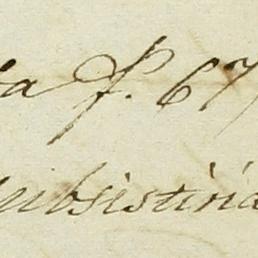 ia f. 67
subsistiria